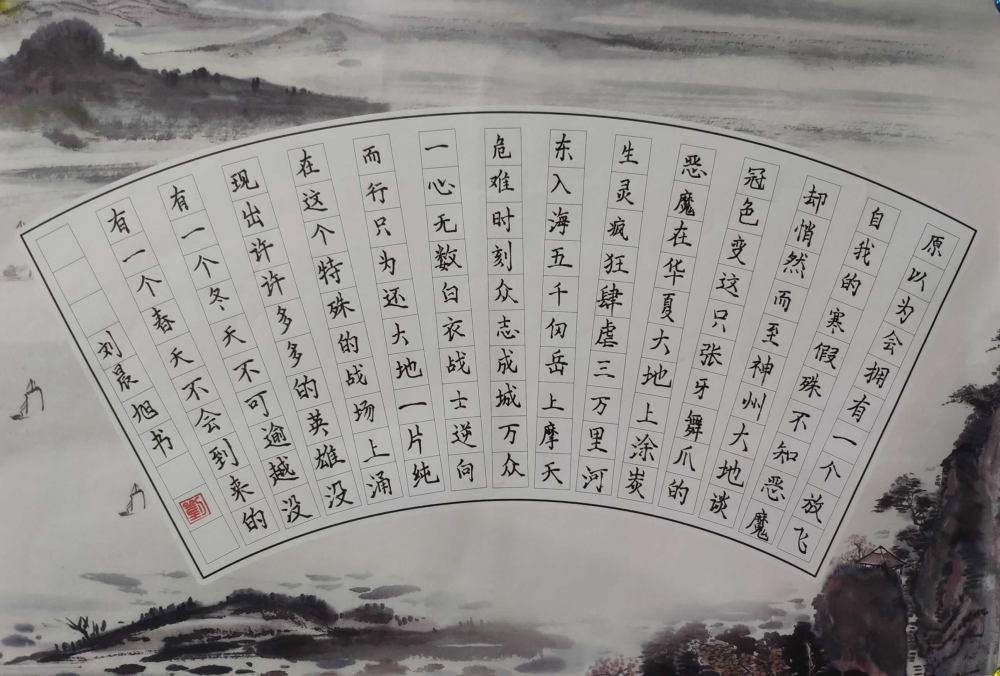 原以为会拥有一个放飞
自我的寒假殊不知恶魔
却悄然而至神州大地谈
冠色变这只张牙舞爪的
恶魔在华夏大地上涂炭
生灵疯狂肆虐三万里河
东入海五千仞岳上摩天
危难时刻众志成城万众
一心无数白衣战士逆向
而行只为还大地一片纯
在这个特殊的战场上涌
现出许许多多的英雄没
有一个冬天不可逾越没
有一个春天不会到来的
刘晨旭书